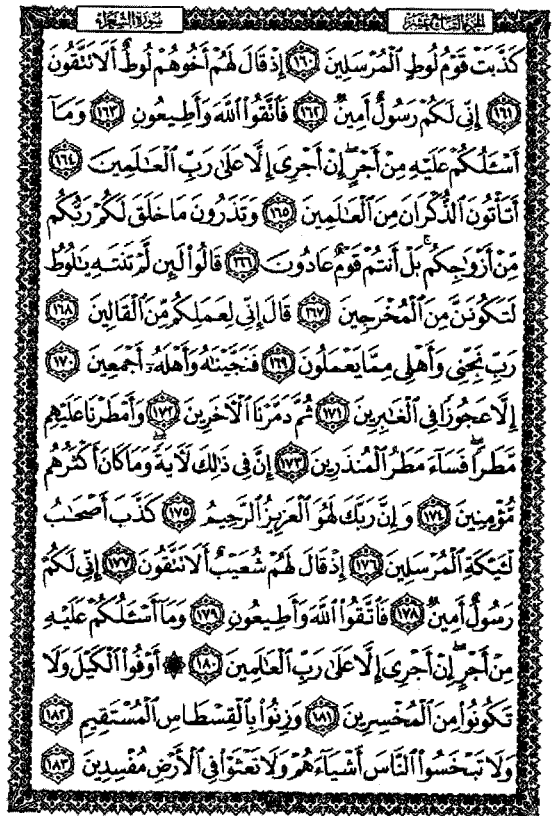 سورة الشعراء الجزء التاسع عشر
كَذَّبَتْ قَوْمُ لُوطٍ ٱلْمُرْسَلِينَ ١٦٠ إِذْ قَالَ لَهُمْ أَخُوهُمْ لُوطٌ أَلَا تَتَّقُونَ
١٦١ إِنِّى لَكُمْ رَسُولٌ أَمِينٌ ١٦٢ فَٱتَّقُوا۟ ٱللَّهَ وَأَطِيعُونِ ١٦٣ وَمَآ
أَسْـَٔلُكُمْ عَلَيْهِ مِنْ أَجْرٍ ۖ إِنْ أَجْرِىَ إِلَّا عَلَىٰ رَبِّ ٱلْعَـٰلَمِينَ ١٦٤
أَتَأْتُونَ ٱلذُّكْرَانَ مِنَ ٱلْعَـٰلَمِينَ ١٦٥ وَتَذَرُونَ مَا خَلَقَ لَكُمْ رَبُّكُم
مِّنْ أَزْوَٰجِكُم ۚ بَلْ أَنتُمْ قَوْمٌ عَادُونَ ١٦٦ قَالُوا۟ لَئِن لَّمْ تَنتَهِ يَـٰلُوطُ
لَتَكُونَنَّ مِنَ ٱلْمُخْرَجِينَ ١٦٧ قَالَ إِنِّى لِعَمَلِكُم مِّنَ ٱلْقَالِينَ ١٦٨
رَبِّ نَجِّنِى وَأَهْلِى مِمَّا يَعْمَلُونَ ١٦٩ فَنَجَّيْنَـٰهُ وَأَهْلَهُۥٓ أَجْمَعِينَ ١٧٠
إِلَّا عَجُوزًا فِى ٱلْغَـٰبِرِينَ ١٧١ ثُمَّ دَمَّرْنَا ٱلْـَٔاخَرِينَ ١٧٢ وَأَمْطَرْنَا عَلَيْهِم
مَّطَرًا ۖ فَسَآءَ مَطَرُ ٱلْمُنذَرِينَ ١٧٣ إِنَّ فِى ذَٰلِكَ لَـَٔايَةً ۖ وَمَا كَانَ أَكْثَرُهُم
مُّؤْمِنِينَ ١٧٤ وَإِنَّ رَبَّكَ لَهُوَ ٱلْعَزِيزُ ٱلرَّحِيمُ ١٧٥ كَذَّبَ أَصْحَـٰبُ
لْـَٔيْكَةِ ٱلْمُرْسَلِينَ ١٧٦ إِذْ قَالَ لَهُمْ شُعَيْبٌ أَلَا تَتَّقُونَ ١٧٧ إِنِّى لَكُمْ
رَسُولٌ أَمِينٌ ١٧٨ فَٱتَّقُوا۟ ٱللَّهَ وَأَطِيعُونِ ١٧٩ وَمَآ أَسْـَٔلُكُمْ عَلَيْهِ
مِنْ أَجْرٍ ۖ إِنْ أَجْرِىَ إِلَّا عَلَىٰ رَبِّ ٱلْعَـٰلَمِينَ ١٨٠ ۞ أَوْفُوا۟ ٱلْكَيْلَ وَلَا
تَكُونُوا۟ مِنَ ٱلْمُخْسِرِينَ ١٨١ وَزِنُوا۟ بِٱلْقِسْطَاسِ ٱلْمُسْتَقِيمِ ١٨٢
وَلَا تَبْخَسُوا۟ ٱلنَّاسَ أَشْيَآءَهُمْ وَلَا تَعْثَوْا۟ فِى ٱلْأَرْضِ مُفْسِدِينَ ١٨٣